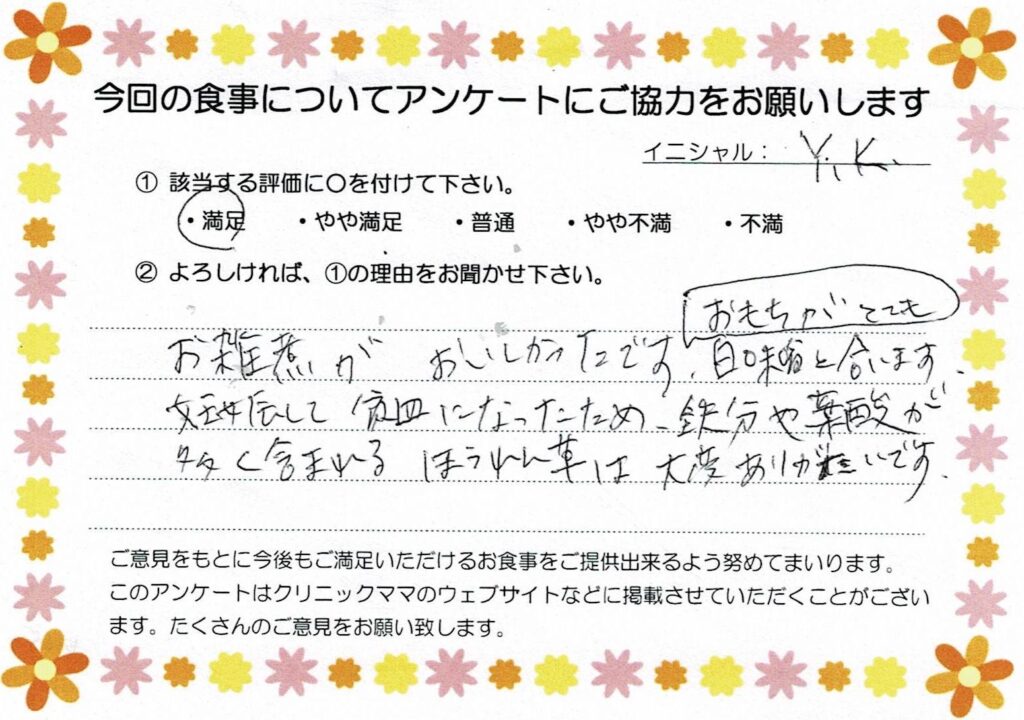 今回の食事についてアンケートにご協力をお願いします
イニシャル： Y. K.
① 該当する評価に〇を付けて下さい。
・満足 ・やや満足 ・普通 ・やや不満 ・不満
② よろしければ、①の理由をお聞かせ下さい。
おもちがとても
お雑煮が おいしかったです。白味噌と合います。
妊娠して 貧血になったため、鉄分や葉酸が
多く含まれる ほうれん草は 大変ありがたいです。
ご意見をもとに今後もご満足いただけるお食事をご提供出来るよう努めてまいります。
このアンケートはクリニックママのウェブサイトなどに掲載させていただくことがござい
ます。たくさんのご意見をお願い致します。